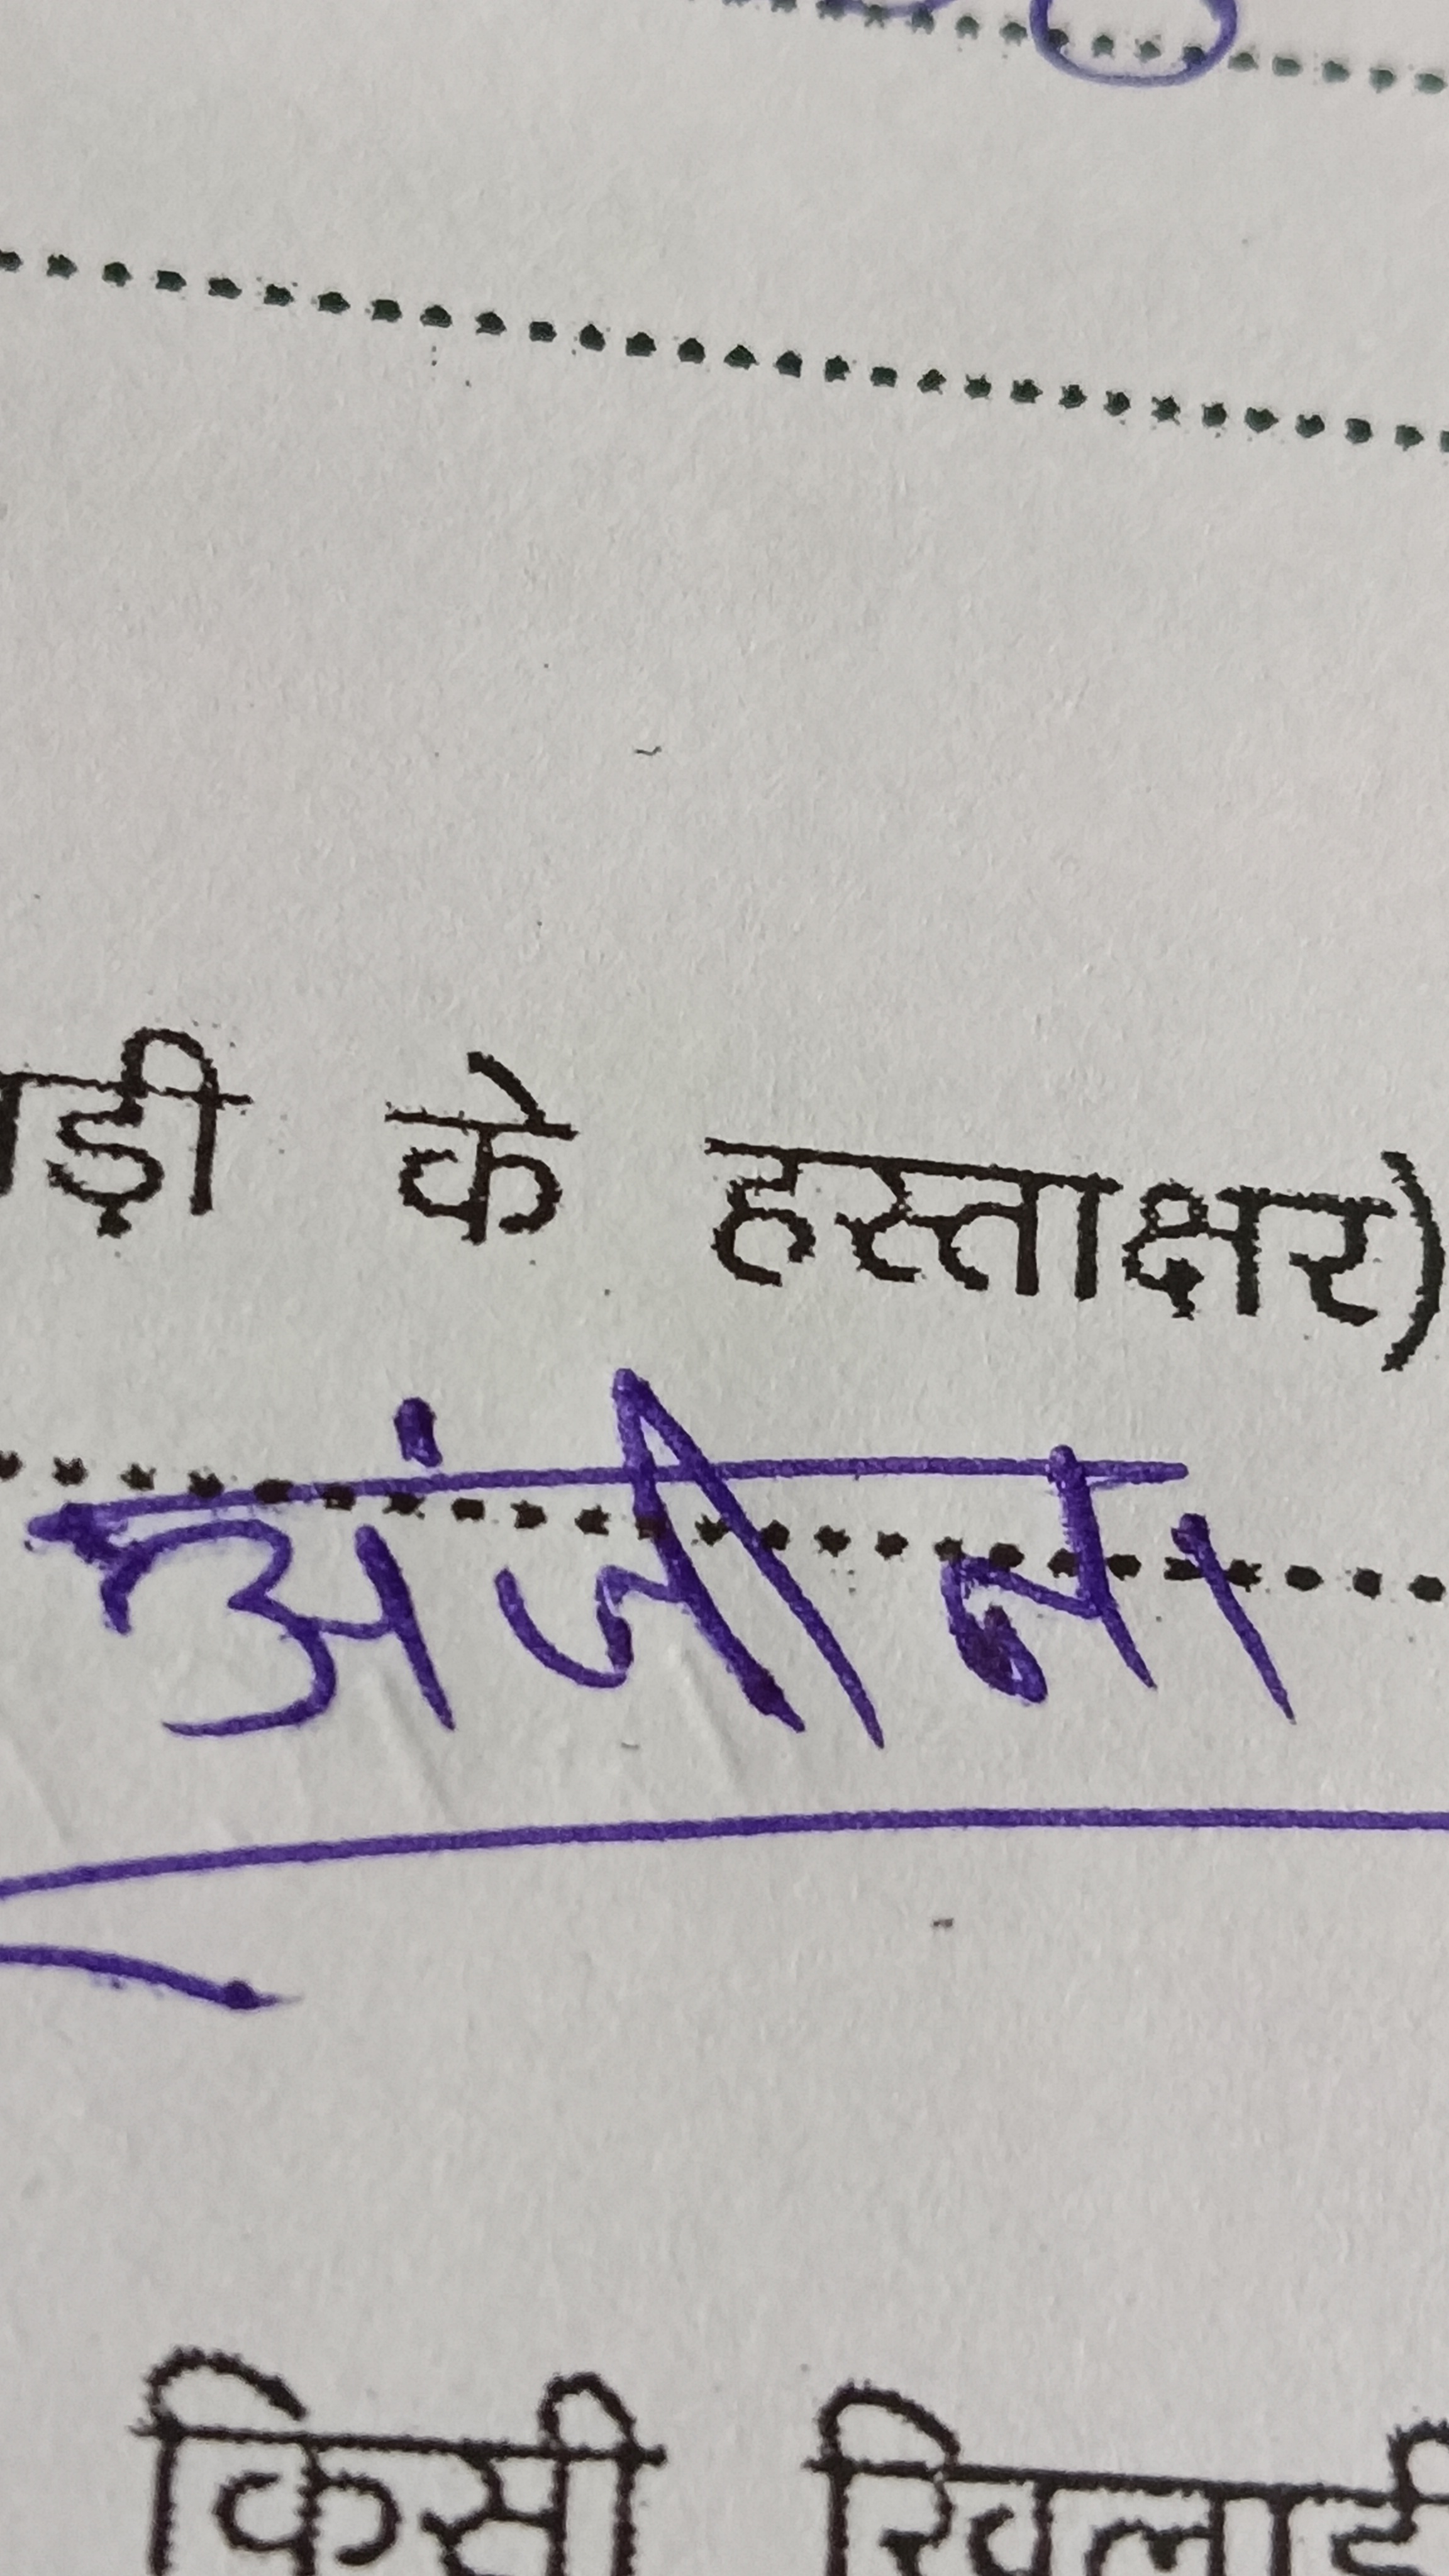 ड़ी के हस्ताक्षर)
अंजीना
किसी खिलाड़ी